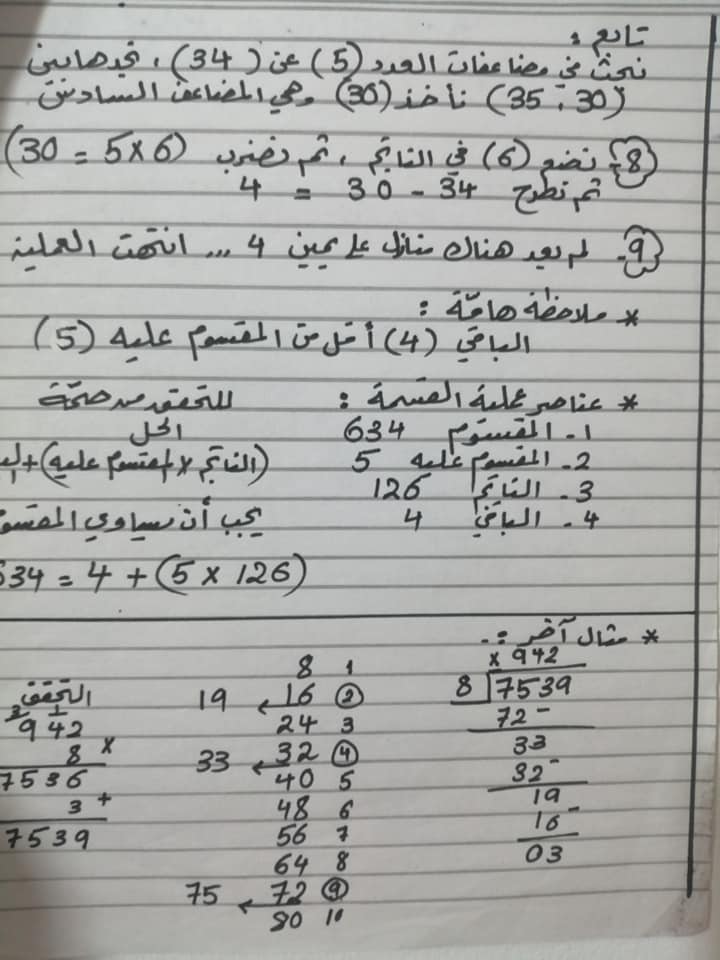 تابع :
نبحث في مضاعفات العدد (5) عن (34) ، نجدها بين
(30 ، 35) نأخذ (30) وهي المضاعف السادس
8- نضع (6) في الناتج ، ثم نضرب (6×5 = 30)
ثم نطرح 34 - 30 = 4
9- لم يعد هناك منازل على يمين 4 ... انتهت العملية
* ملاحظة هامّة :
الباقي (4) أقل من المقسوم عليه (5)
* عناصر عملية القسمة :
1- المقسوم 634
2- المقسوم عليه 5
3- الناتج 126
4- الباقي 4
للتحقق من صحّة
الحل
(الناتج × المقسوم عليه) +
يجب أن يساوي
34 = 4 + (5 × 126)
* مثال آخر :-
× 942
8 7539
72 -
33
32 -
19
16 -
03
8 1
19 ← 16 2
24 3
33 ← 32 4
40 5
48 6
56 7
64 8
75 ← 72 9
80 10
التحقق
3 1
942
8 ×
7536
3 +
7539